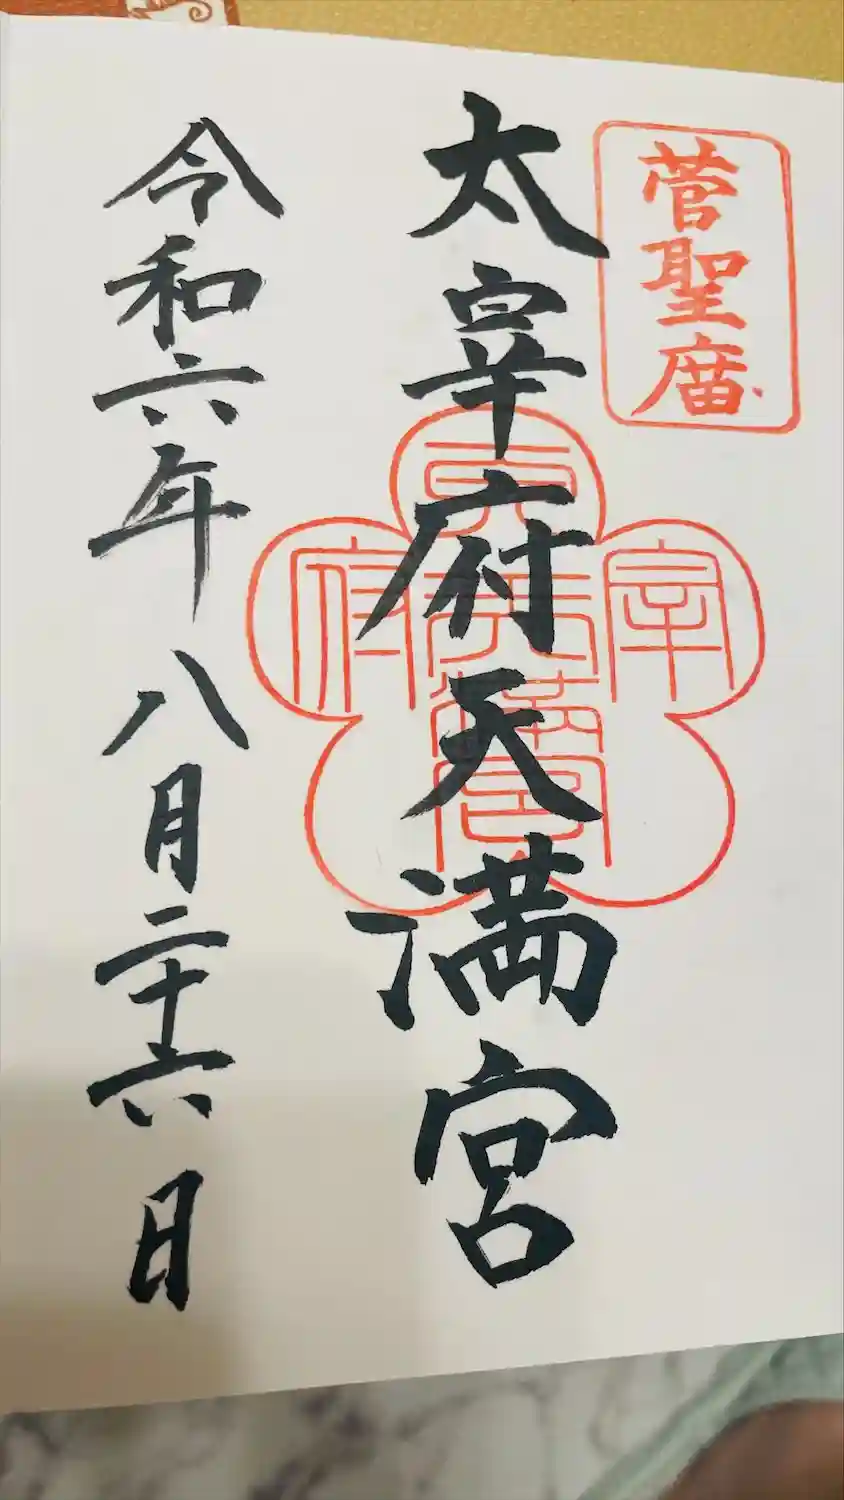 菅聖庿
太宰府天満宮
太宰府天滿宮
令和六年八月二十六日